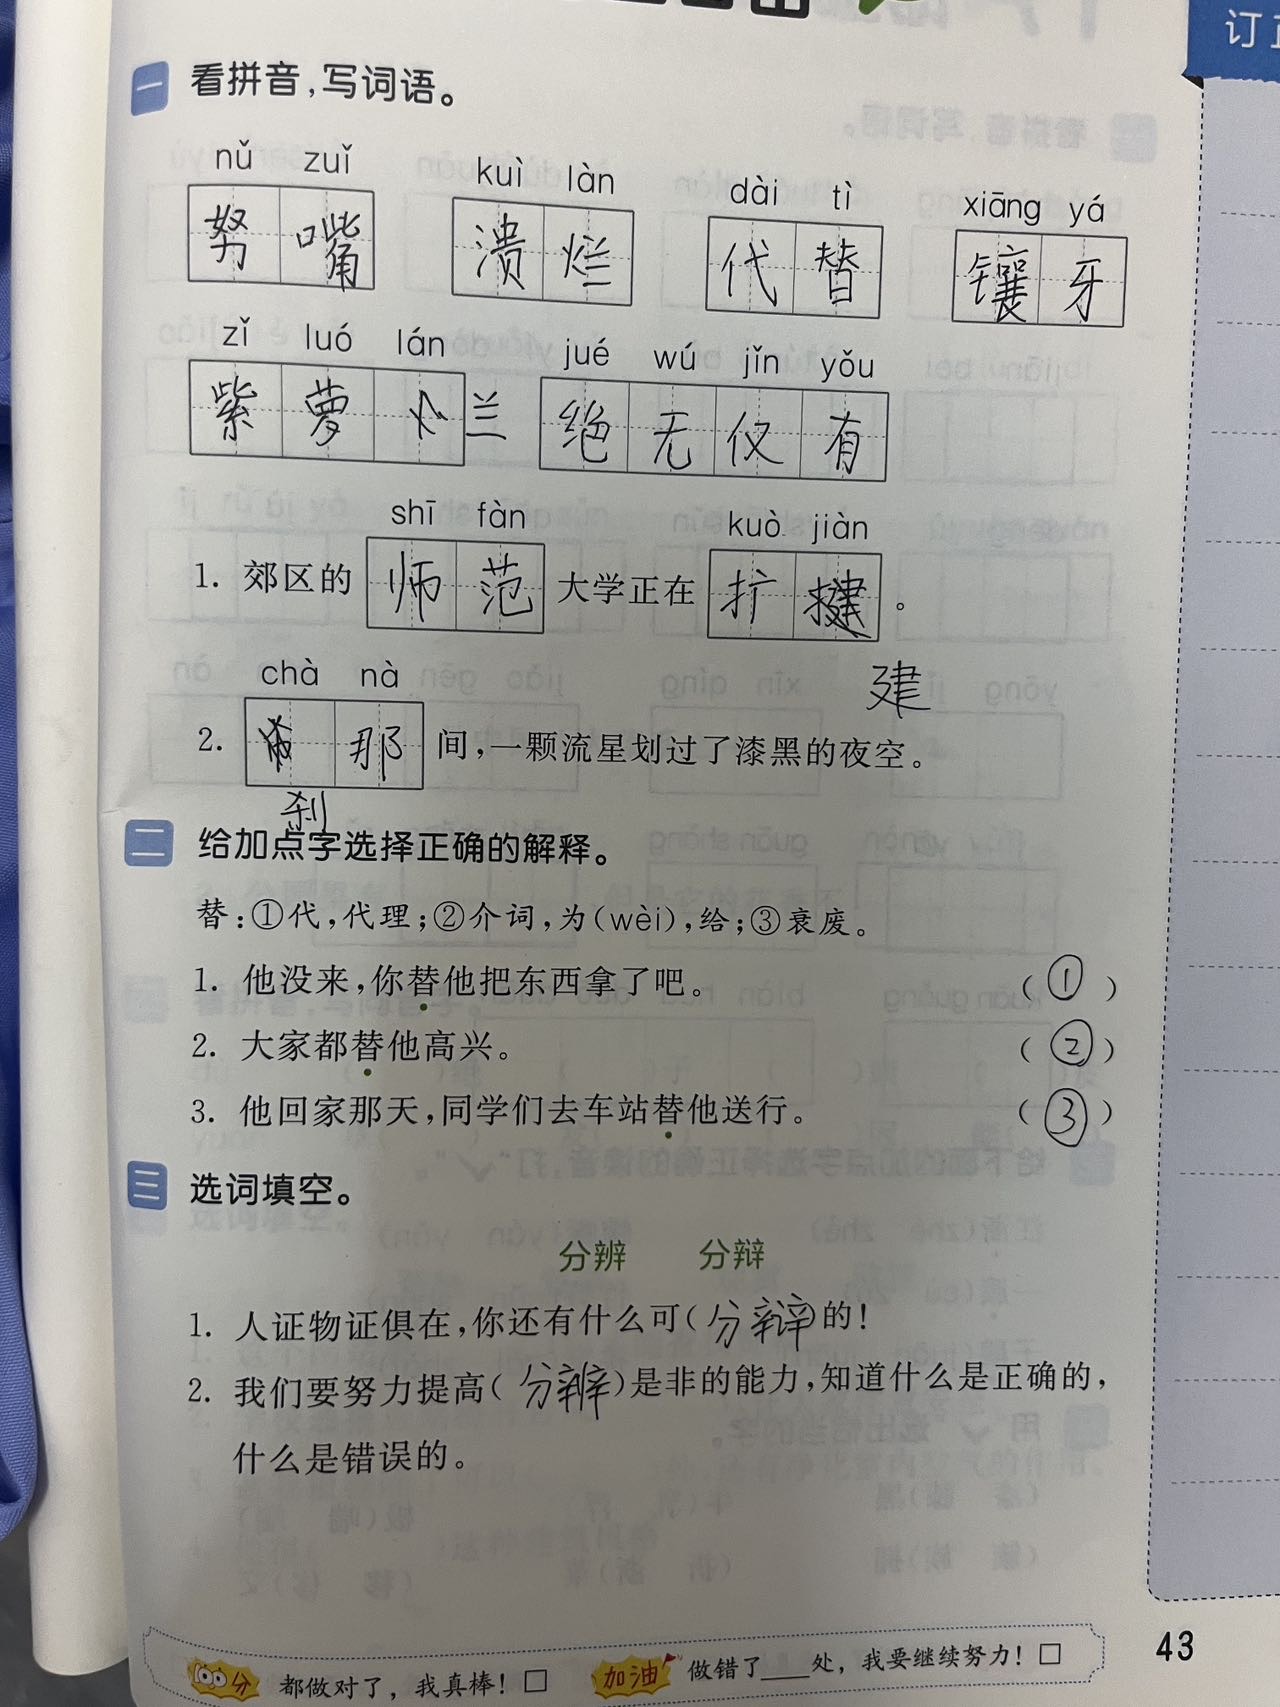 订
一 看拼音,写词语。
nǔ zuǐ kuì làn dài tì xiāng yá
努嘴 溃烂 代替 镶牙
zǐ luó lán jué wú jǐn yǒu
紫萝 兰 绝无仅有
shī fàn kuò jiàn
1. 郊区的 师范 大学正在 扩 。
建
chà nà
2. 那 间,一颗流星划过了漆黑的夜空。
刹
二 给加点字选择正确的解释。
替:①代,代理;②介词,为(wèi),给;③衰废。
1. 他没来,你替他把东西拿了吧。 (①)
2. 大家都替他高兴。 (②)
3. 他回家那天,同学们去车站替他送行。 (③)
三 选词填空。
分辨 分辩
1. 人证物证俱在,你还有什么可(分辩)的!
2. 我们要努力提高(分辨)是非的能力,知道什么是正确的,
什么是错误的。
100分 都做对了,我真棒!□ 加油 做错了____处,我要继续努力!□
43